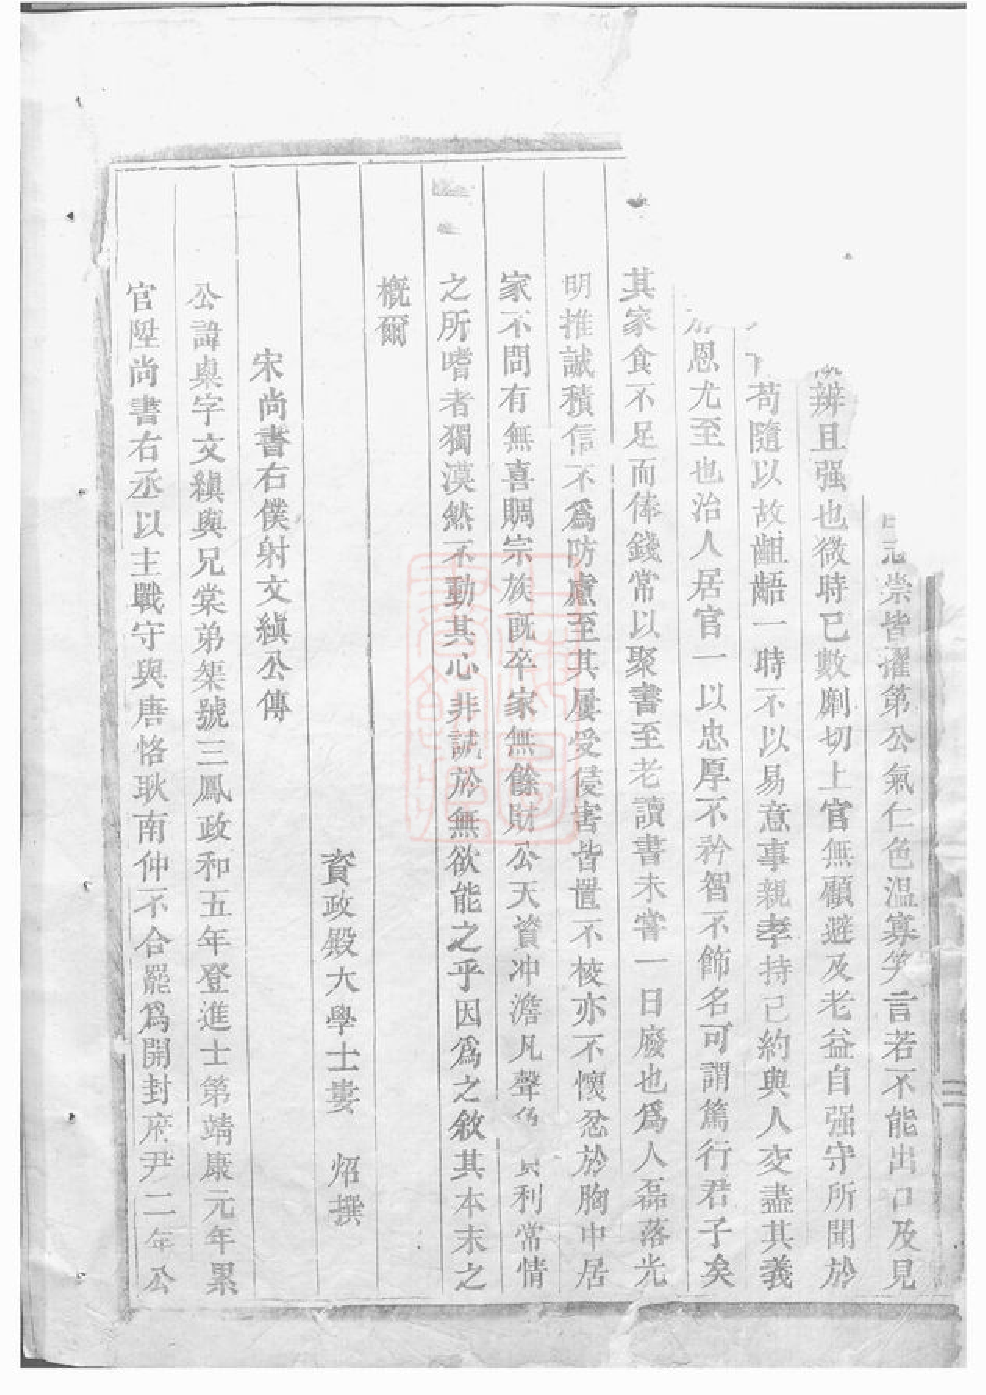 崇皆擢第公氣仁色溫寡笑言若不能出口及見
辨且强也微時已數劘切上官無顧避及老益自强守所聞於
苟隨以故齟齬一時不以易意事親孝持己約與人交盡其義
恩尤至也治人居官一以忠厚不矜智不飾名可謂篤行君子矣
其家食不足而俸錢常以聚書至老讀書未嘗一日廢也爲人磊落光
明推誠積信不爲防慮至其屢受侵害皆置不校亦不懷忿於胸中居
家不問有無喜賙宗族既卒家無餘財公天資冲澹凡聲利常情
之所嗜者獨漠然不動其心非誠於無欲能之乎因爲之敘其本末之
概爾
資政殿大學士婁炤撰
宋尚書右僕射文縝公傳
公諱㮚字文縝與兄棠弟榘號三鳳政和五年登進士第靖康元年累
官陞尚書右丞以主戰守與唐恪耿南仲不合罷爲開封府尹二年公